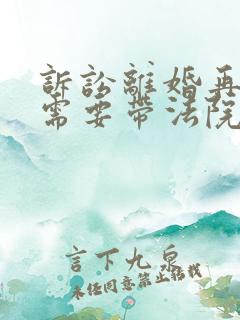 訴訟離婚再
需要帶法院
言下九泉
未经同意禁止搭载